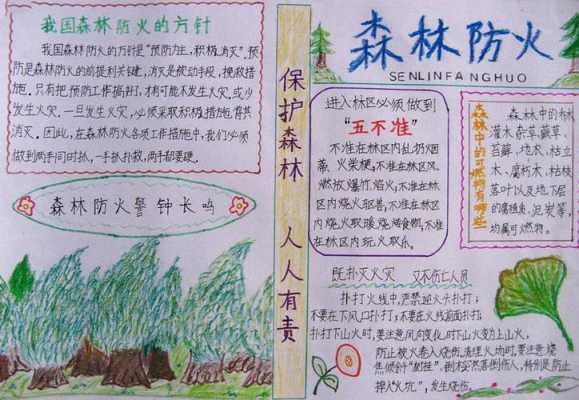 我国森林防火的方针
我国森林防火的方针是"预防为主，积极消灭"。预
防是森林防火的前提和关键，消灭是被动手段，挽救措
施。只有把预防工作搞好了，才有可能不发生火灾，或少
发生火灾。一旦发生火灾，必须采取积极措施，将其
消灭。因此，在森林防火各项工作措施中，我们必须
做到两手同时抓，一手抓扑救，两手都要硬。
森林防火警钟长鸣
保护森林 人人有责
森林防火
SENLINFANGHUO
进入林区必须做到
"五不准"
不准在林区内乱扔烟
蒂、火柴梗，不准在林区风
燃放爆竹、焰火，不准在林区
内烧火驱兽，不准在林区
内烧火取暖烧烤食物，不准
在林区内玩火取乐。
森林中的可燃物有哪些
森林中的乔木
灌木、杂草、蕨草、
苔藓、地衣、枯立
木、腐朽木、枯枝
落叶以及地下层
的腐殖质、泥炭等，
均属可燃物。
既扑灭火灾 又不伤亡人员
扑打火线中，严禁迎火头扑打；
不要在下风口扑打；不要在火线前面扑打；
扑打下山火时，要注意风向变化，时下山火变为上山火，
防止被火卷入烧伤，清理火场时，要注意烧
焦倾斜"树挂"、倒木突然落倒伤人，特别是防止
掉入"火坑"，发生烧伤。